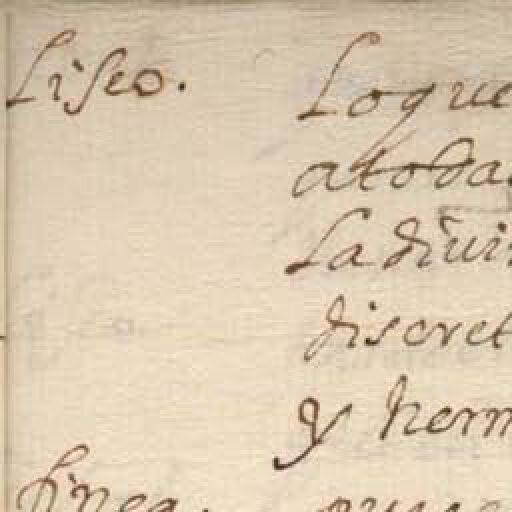 Liseo. Loque
atoda
La divi
discret
y herm
finea.